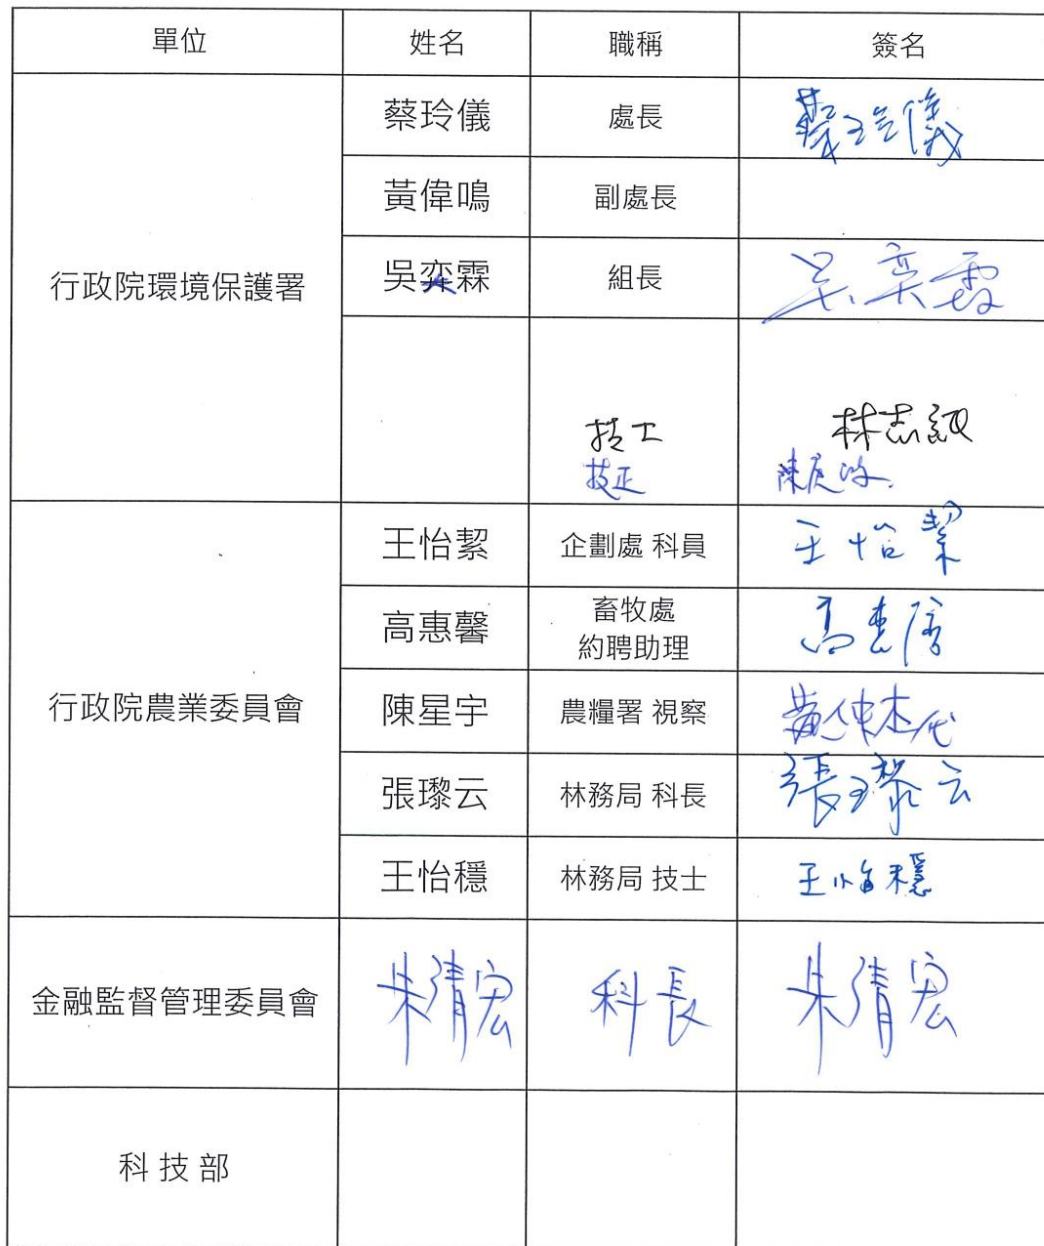 單位 姓名 職稱 簽名
行政院環境保護署
蔡玲儀 處長 蔡玲儀
黃偉鳴 副處長
吳奕霖 組長 吳奕霖
技士 林志
技正 陳
行政院農業委員會
王怡絜 企劃處 科員 王怡絜
高惠馨 畜牧處
約聘助理 高惠馨
陳星宇 農糧署 視察 黃 代
張瓈云 林務局 科長 張瓈云
王怡穩 林務局 技士 王怡穩
金融監督管理委員會 朱清宏 科長 朱清宏
科技部